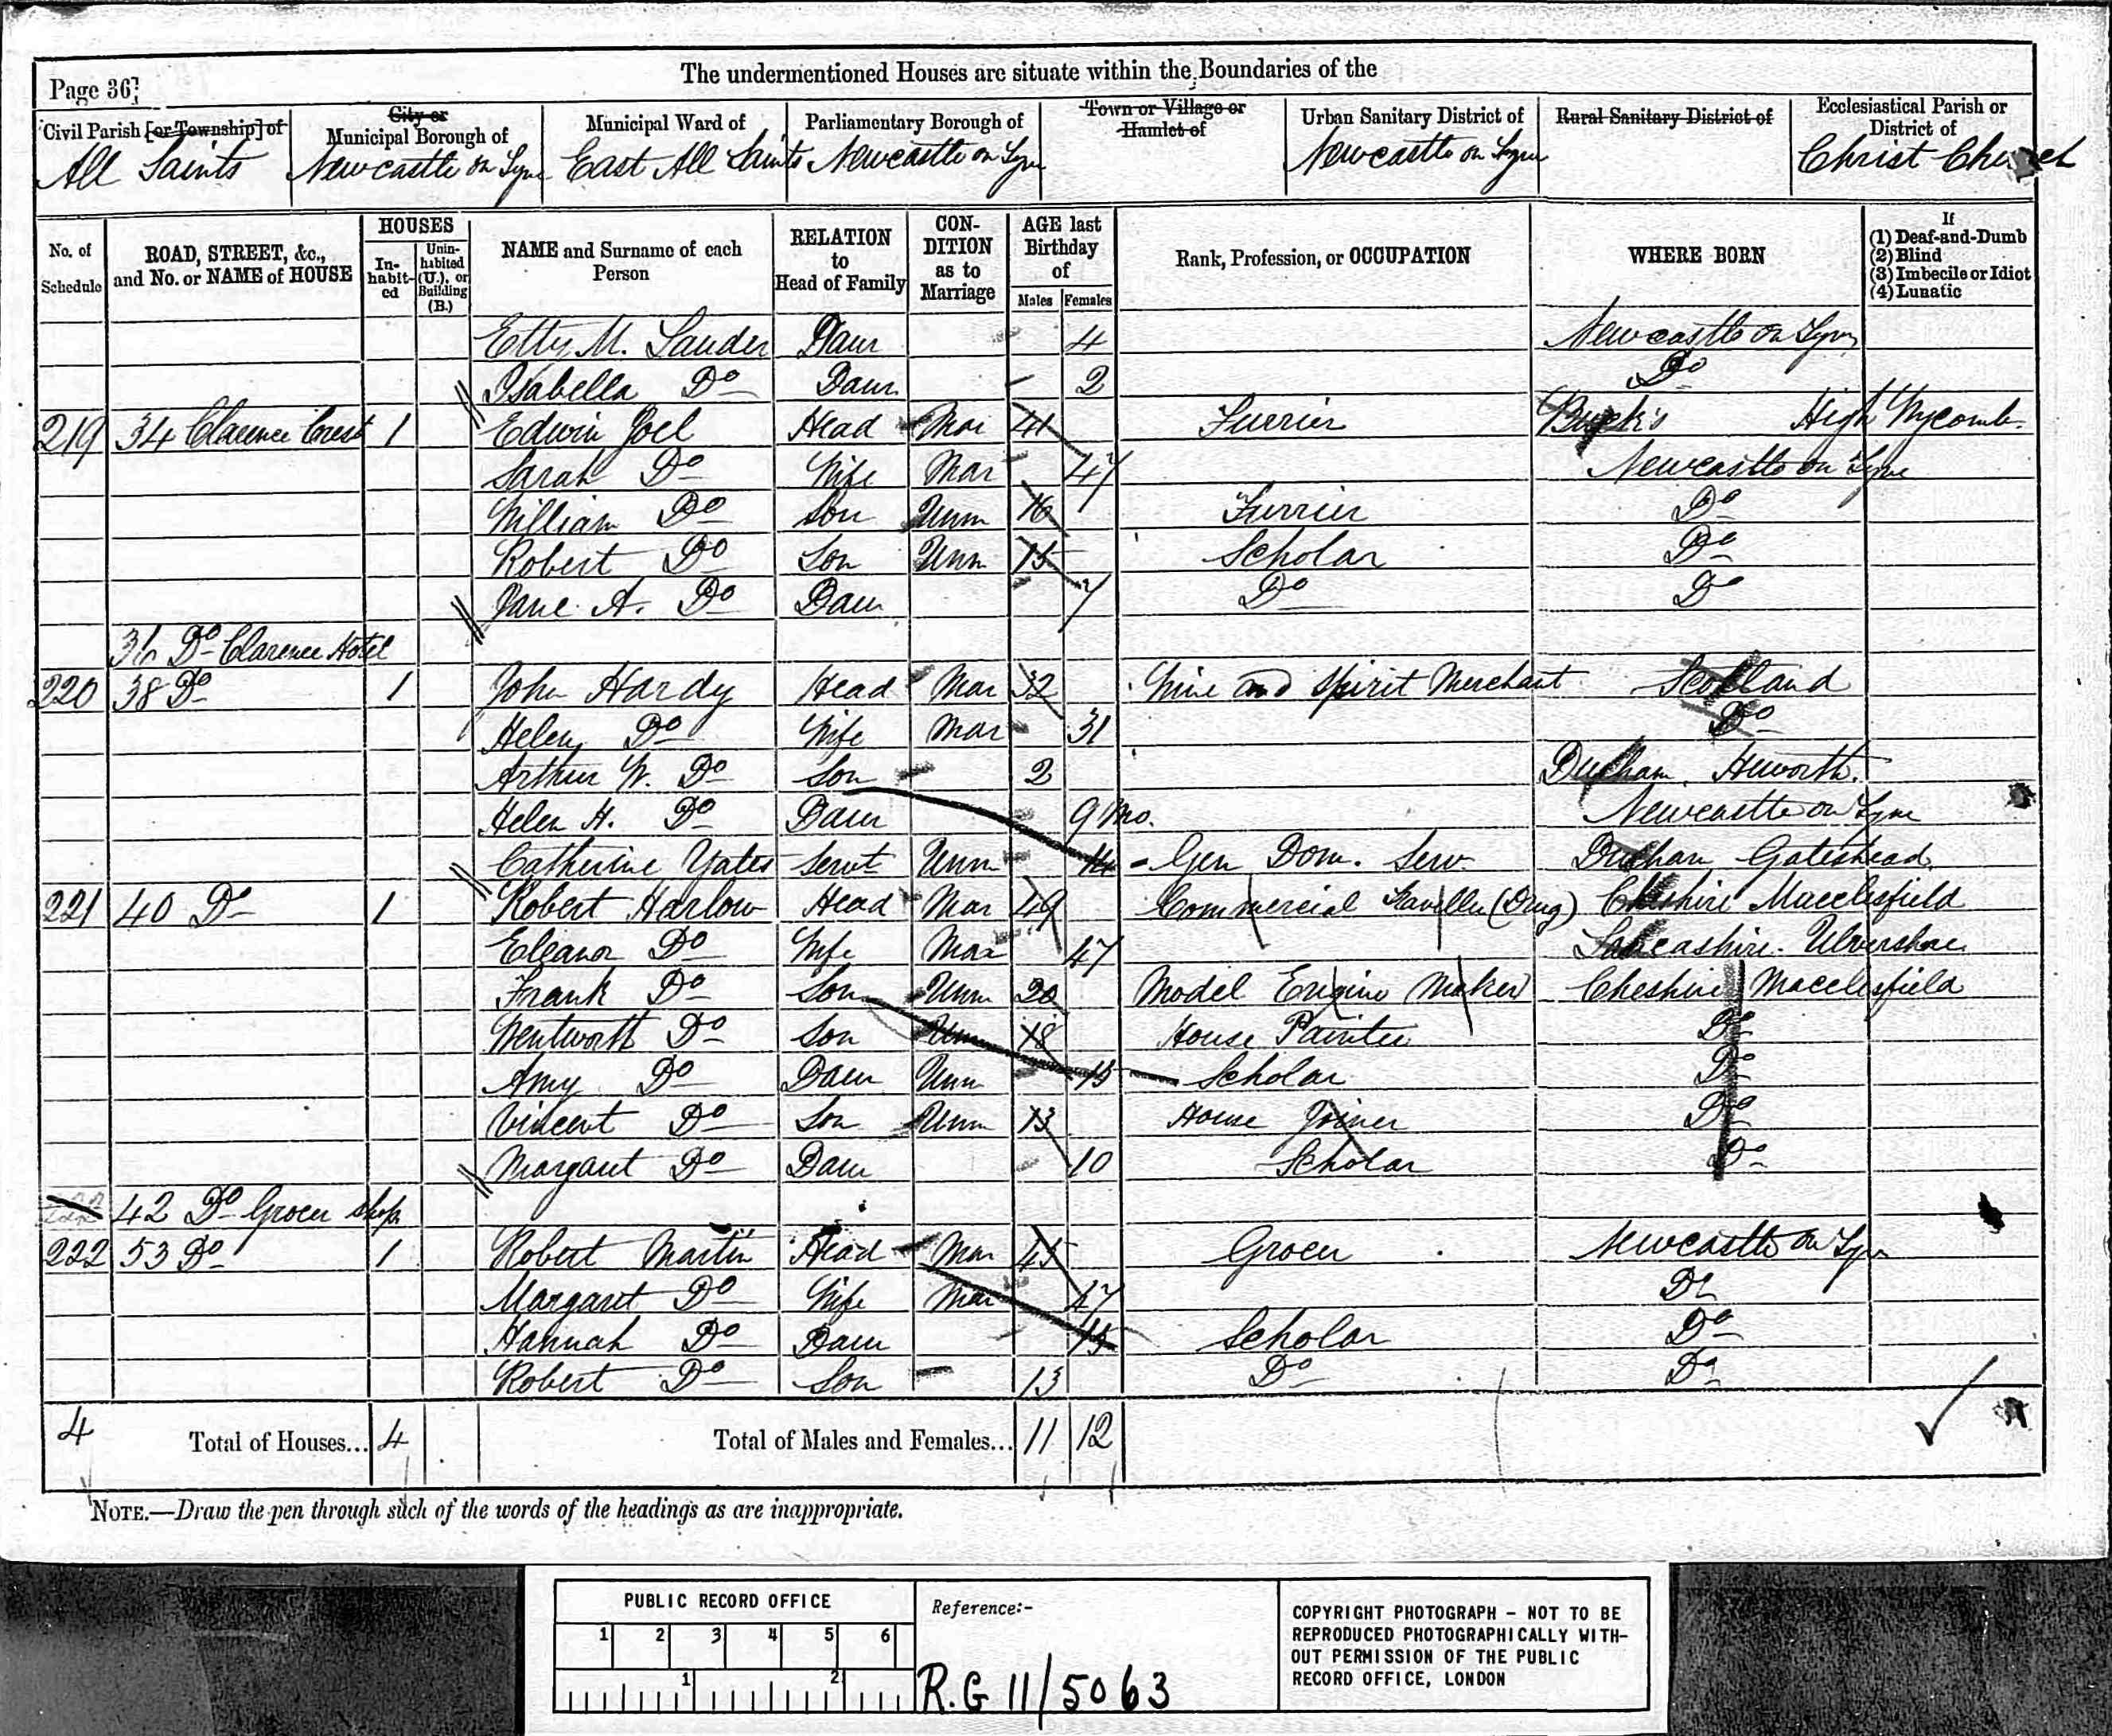 The undermentioned Houses are situate within the Boundaries of the
Page 36]
Civil Parish [or Township] of
All Saints
City or Municipal Borough of
Newcastle on Tyne
Municipal Ward of
East All Saints
Parliamentary Borough of
Newcastle on Tyne
Town or Village or Hamlet of
Urban Sanitary District of
Newcastle on Tyne
Rural Sanitary District of
Ecclesiastical Parish or District of
Christ Church
No. of Schedule
ROAD, STREET, &c., and No. or NAME of HOUSE
HOUSES
In-habit-ed
Unin-habited (U.), or Building (B.)
NAME and Surname of each Person
RELATION to Head of Family
CON-DITION as to Marriage
AGE last Birthday of
Males Females
Rank, Profession, or OCCUPATION
WHERE BORN
If
(1) Deaf-and-Dumb
(2) Blind
(3) Imbecile or Idiot
(4) Lunatic
Etty M. Lauder Daur 4 Newcastle on Tyne
Isabella Do Daur 2 Do
219 34 Clarence Crest 1 Edwin Joel Head Mar 41 Furrier Buck's High Wycomb
Sarah Do Wife Mar 47 Newcastle on Tyne
William Do Son Unm 16 Furrier Do
Robert Do Son Unm 15 Scholar Do
Jane A. Do Daur 7 Do Do
36 Do Clarence Hotel
220 38 Do 1 John Hardy Head Mar 32 Wine and Spirit Merchant Scotland
Helen Do Wife Mar 31 Do
Arthur W. Do Son 2 Durham Heworth
Helen H. Do Daur 9 Mo. Newcastle on Tyne
Catherine Yates Servt Unm 14 Gen Dom. Serv Durham Gateshead
221 40 Do 1 Robert Harlow Head Mar 49 Commercial Traveller (Drug) Cheshire Macclesfield
Eleanor Do Wife Mar 47 Lancashire Ulverstone
Frank Do Son Unm 20 Model Engine Maker Cheshire Macclesfield
Wentworth Do Son Unm 18 House Painter Do
Amy Do Daur Unm 15 Scholar Do
Vincent Do Son Unm 13 House Joiner Do
Margaret Do Daur 10 Scholar Do
222 42 Do Grocer shop
222 53 Do 1 Robert Martin Head Mar 45 Grocer Newcastle on Tyne
Margaret Do Wife Mar 47 Do
Hannah Do Daur 15 Scholar Do
Robert Do Son 13 Do Do
4 Total of Houses... 4 Total of Males and Females... 11 12
NOTE.—Draw the pen through such of the words of the headings as are inappropriate.
PUBLIC RECORD OFFICE
1 2 3 4 5 6
1 2
Reference:-
R.G 11/5063
COPYRIGHT PHOTOGRAPH – NOT TO BE
REPRODUCED PHOTOGRAPHICALLY WITH-
OUT PERMISSION OF THE PUBLIC
RECORD OFFICE, LONDON